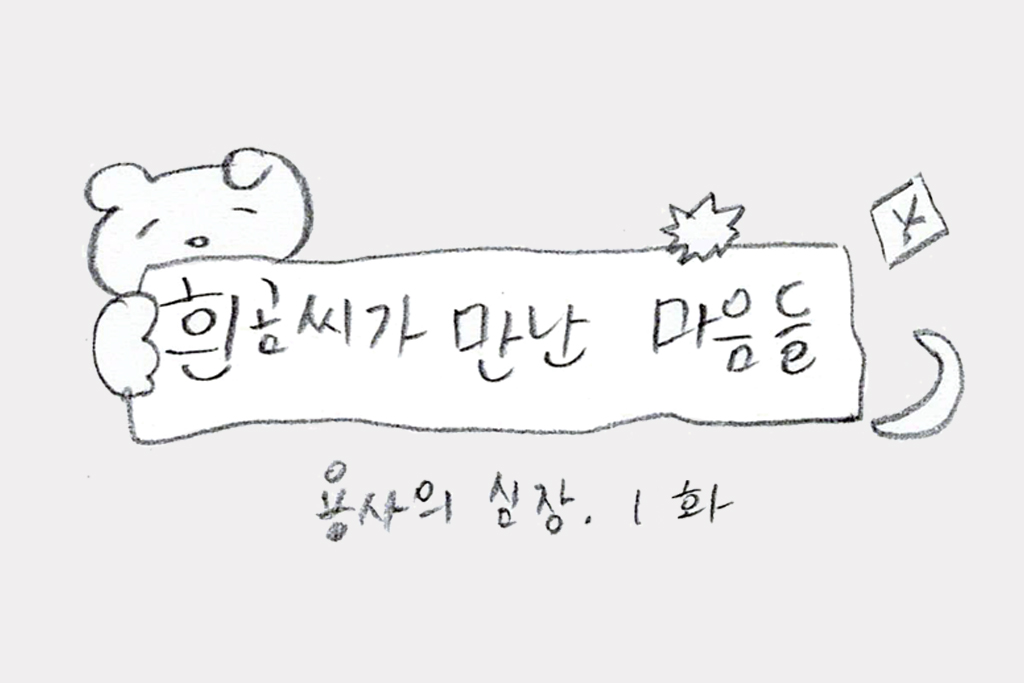 흰곰씨가 만난 마음들
용사의 심장. 1화